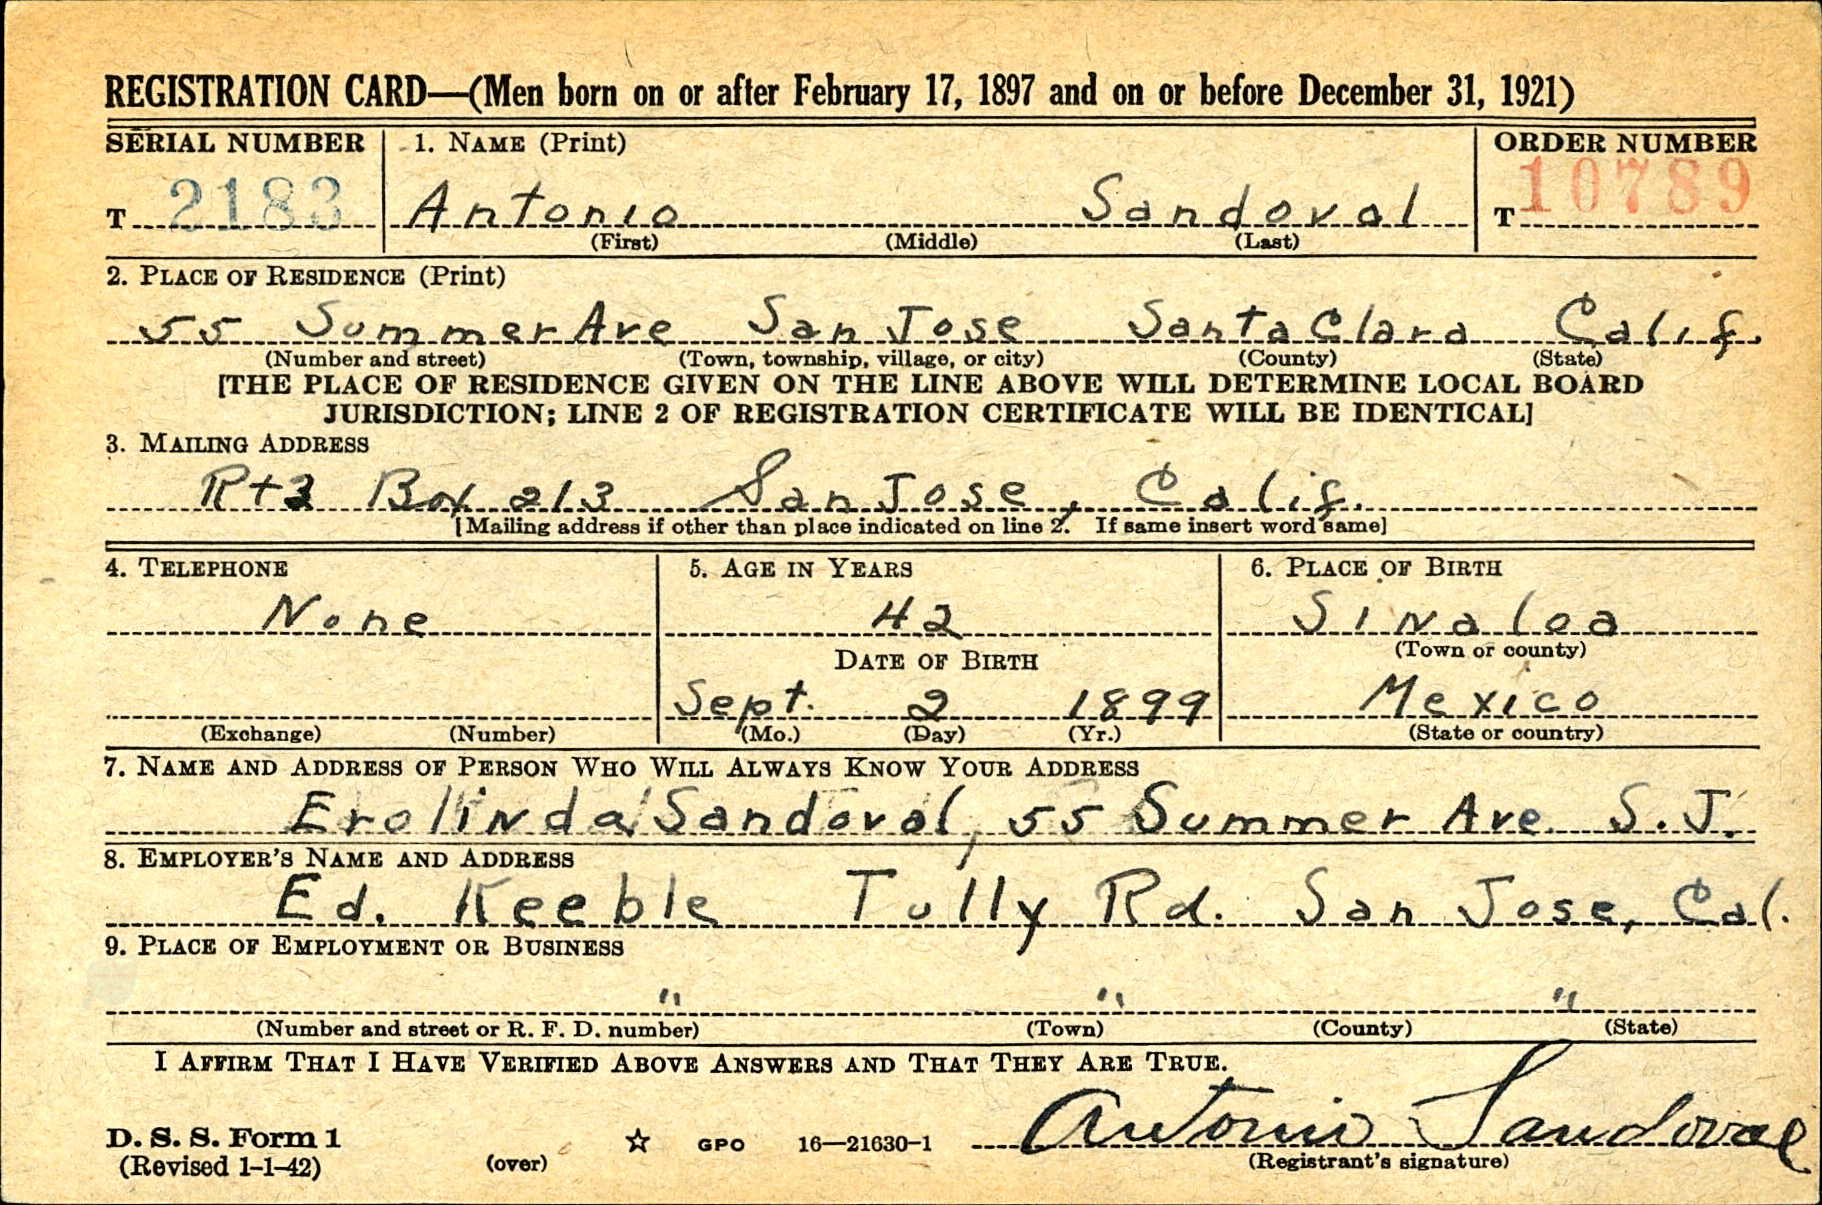 REGISTRATION CARD—(Men born on or after February 17, 1897 and on or before December 31, 1921)
SERIAL NUMBER 1. NAME (Print) ORDER NUMBER
T 2183 Antonio Sandoval T 10789
(First) (Middle) (Last)
2. PLACE OF RESIDENCE (Print)
55 Summer Ave San Jose Santa Clara Calif.
(Number and street) (Town, township, village, or city) (County) (State)
[THE PLACE OF RESIDENCE GIVEN ON THE LINE ABOVE WILL DETERMINE LOCAL BOARD
JURISDICTION; LINE 2 OF REGISTRATION CERTIFICATE WILL BE IDENTICAL]
3. MAILING ADDRESS
Rt 3 Box 213 San Jose, Calif.
[Mailing address if other than place indicated on line 2. If same insert word same]
4. TELEPHONE 5. AGE IN YEARS 6. PLACE OF BIRTH
None 42 Sinaloa
(Town or county)
DATE OF BIRTH
Sept. 2 1899 Mexico
(Exchange) (Number) (Mo.) (Day) (Yr.) (State or country)
7. NAME AND ADDRESS OF PERSON WHO WILL ALWAYS KNOW YOUR ADDRESS
Erolinda Sandoval, 55 Summer Ave. S. J.
8. EMPLOYER'S NAME AND ADDRESS
Ed. Keeble Tully Rd. San Jose, Cal.
9. PLACE OF EMPLOYMENT OR BUSINESS
" " "
(Number and street or R. F. D. number) (Town) (County) (State)
I AFFIRM THAT I HAVE VERIFIED ABOVE ANSWERS AND THAT THEY ARE TRUE.
D. S. S. Form 1 ☆ GPO 16—21630-1 Antonio Sandoval
(Revised 1-1-42) (over) (Registrant's signature)